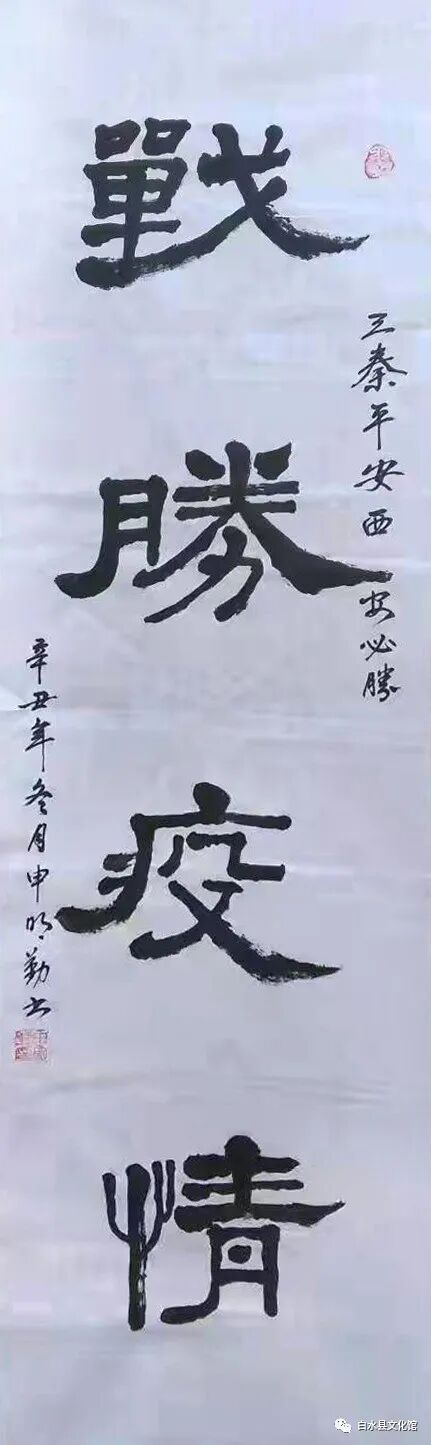 戰勝疫情
三秦平安西安必勝
辛丑年冬月申明勤书
白水县文化馆